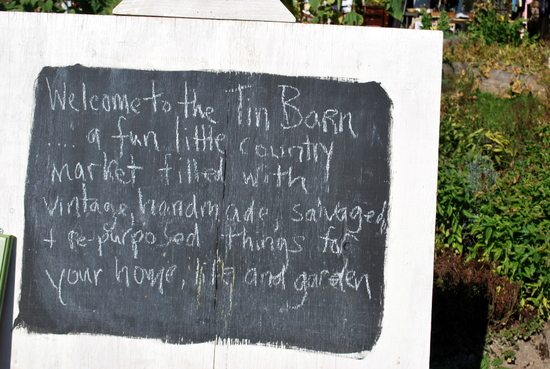 Welcome to the Tin Barn
.... a fun little country
market filled with
vintage, handmade, salvaged,
+ re-purposed things for
your home, life and garden